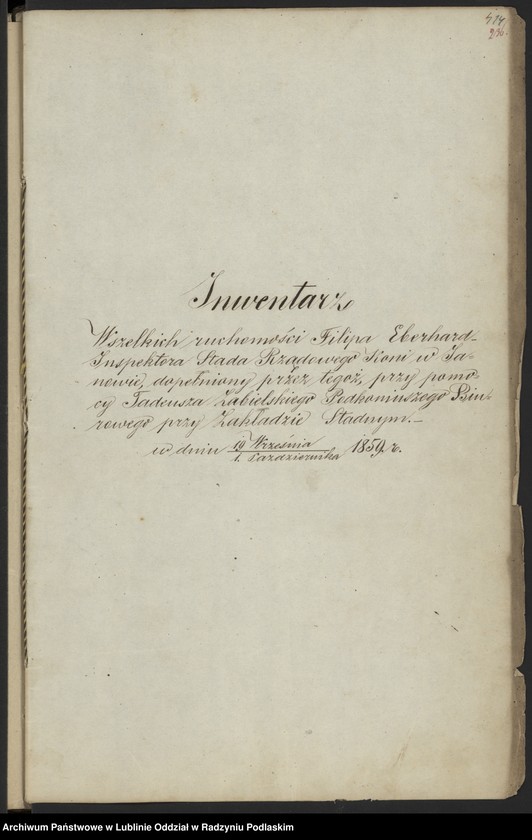 514
236.
Inwentarz
Wszelkich ruchomości Filipa Eberhard
Inspektora Stada Rządowego Koni w Ja-
nowie, dopełniony przez tegoż, przy pomo-
cy Tadeusza Zabielskiego Podkoniuszego Biu-
rowego przy Zakładzie Stadnym.—
w dniu 19 Września / 1. Października 1859. r.
Archiwum Państwowe w Lublinie Oddział w Radzyniu Podlaskim